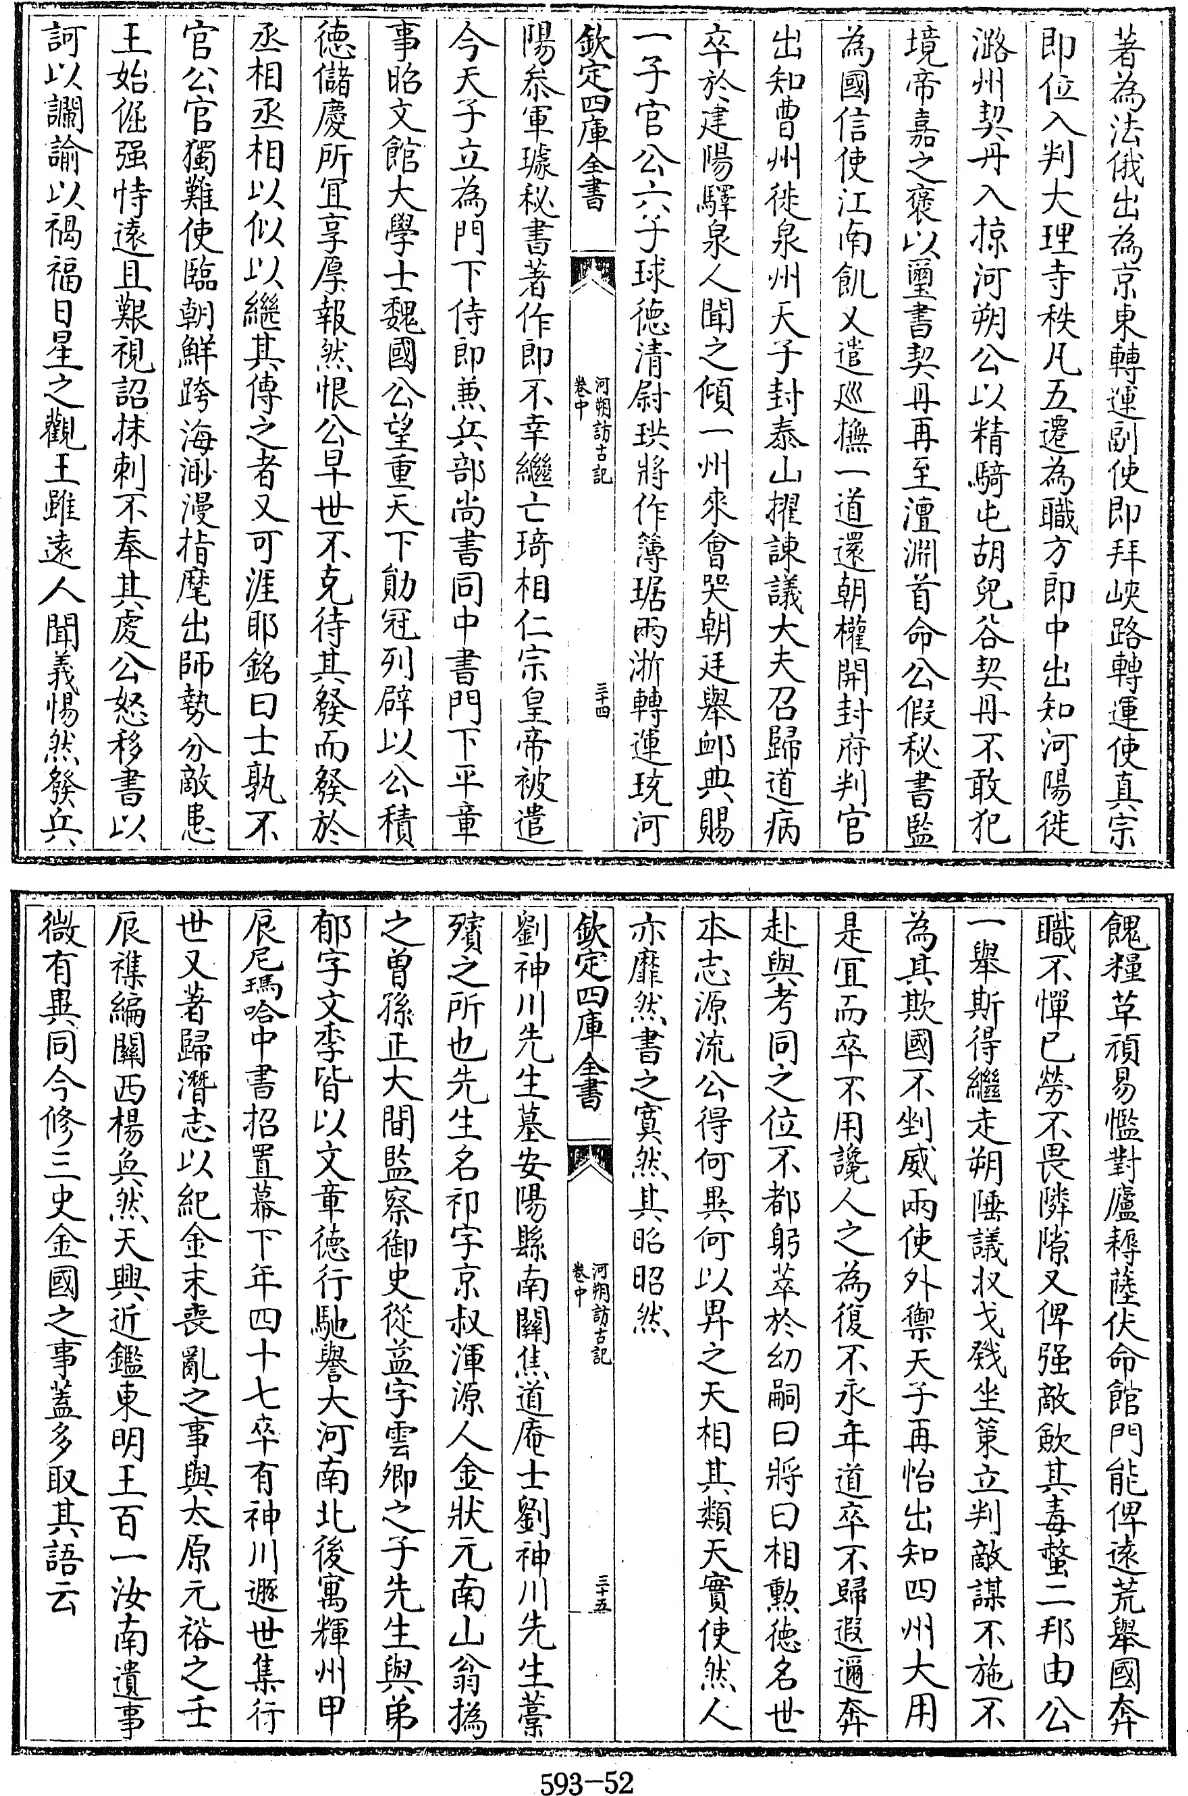 著為法俄出為京東轉運副使即拜峽路轉運使真宗
即位入判大理寺秩凡五遷為職方郎中出知河陽徙
潞州契丹入掠河朔公以精騎屯胡兒谷契丹不敢犯
境帝嘉之褒以璽書契丹再至澶淵首命公假秘書監
為國信使江南飢又遣巡撫一道還朝權開封府判官
出知曹州徙泉州天子封泰山擢諫議大夫召歸道病
卒於建陽驛泉人聞之傾一州來會哭朝廷舉卹典賜
一子官公六子球德清尉珙將作簿琚兩浙轉運琉河
欽定四庫全書
河朔訪古記
卷中
三十四
陽叅軍璩秘書著作郎不幸繼亡琦相仁宗皇帝被遺
今天子立為門下侍郎兼兵部尚書同中書門下平章
事昭文館大學士魏國公望重天下勛冠列辟以公積
德儲慶所宜享厚報然恨公早世不克待其發而發於
丞相丞相以似以繼其傳之者又可涯耶銘曰士孰不
官公官獨難使臨朝鮮跨海渺漫指麾出師勢分敵患
王始倔强恃遠且艱視詔抹刺不奉其處公怒移書以
訶以讕諭以禍福日星之觀王雖遠人聞義惕然發兵
餽糧草頑易懢對廬耨薩伏命館門能俾遠荒舉國奔
職不憚已勞不畏隣隙又俾强敵歛其毒螫二邦由公
一舉斯得繼走朔陲議抆戈戣坐策立判敵謀不施不
為其欺國不剉威兩使外禦天子再怡出知四州大用
是宜而卒不用讒人之為復不永年道卒不歸遐邇奔
赴與考同之位不都躬萃於幼嗣曰將曰相勲德名世
本志源流公得何異何以畀之天相其類天實使然人
亦靡然書之寘然其昭昭然
欽定四庫全書
河朔訪古記
卷中
三十五
劉神川先生墓安陽縣南關焦道庵士劉神川先生藁
殯之所也先生名祁字京叔渾源人金狀元南山翁撝
之曾孫正大間監察御史從益字雲卿之子先生與弟
郁字文季皆以文章德行馳譽大河南北後寓輝州甲
辰尼瑪哈中書招置幕下年四十七卒有神川遯世集行
世又著歸潛志以紀金末喪亂之事與太原元裕之壬
辰襍編關西楊奐然天興近鑑東明王百一汝南遺事
微有異同今修三史金國之事蓋多取其語云
593-52